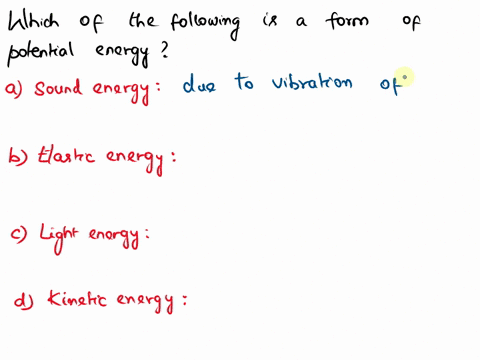 Which of the following is a form of
potential energy?
a) Sound energy: due to vibration of
b) Elastic energy:
c) Light energy:
d) Kinetic energy: